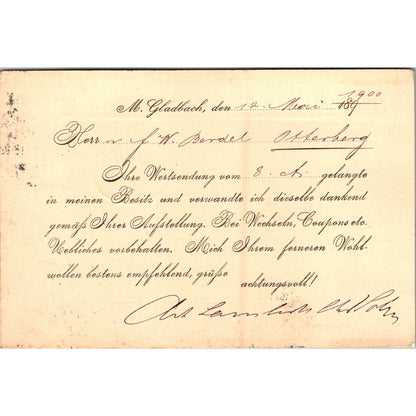 M. Gladbach, den 12. Mai 1900 189
Herrn f. W. Berdel Otterberg
Ihre Wertsendung vom 8. ds. gelangte
in meinen Besitz und verwandte ich dieselbe dankend
gemäß Ihrer Aufstellung. Bei Wechseln, Coupons etc.
Uebliches vorbehalten. Mich Ihrem ferneren Wohl-
wollen bestens empfehlend, grüße
achtungsvoll!